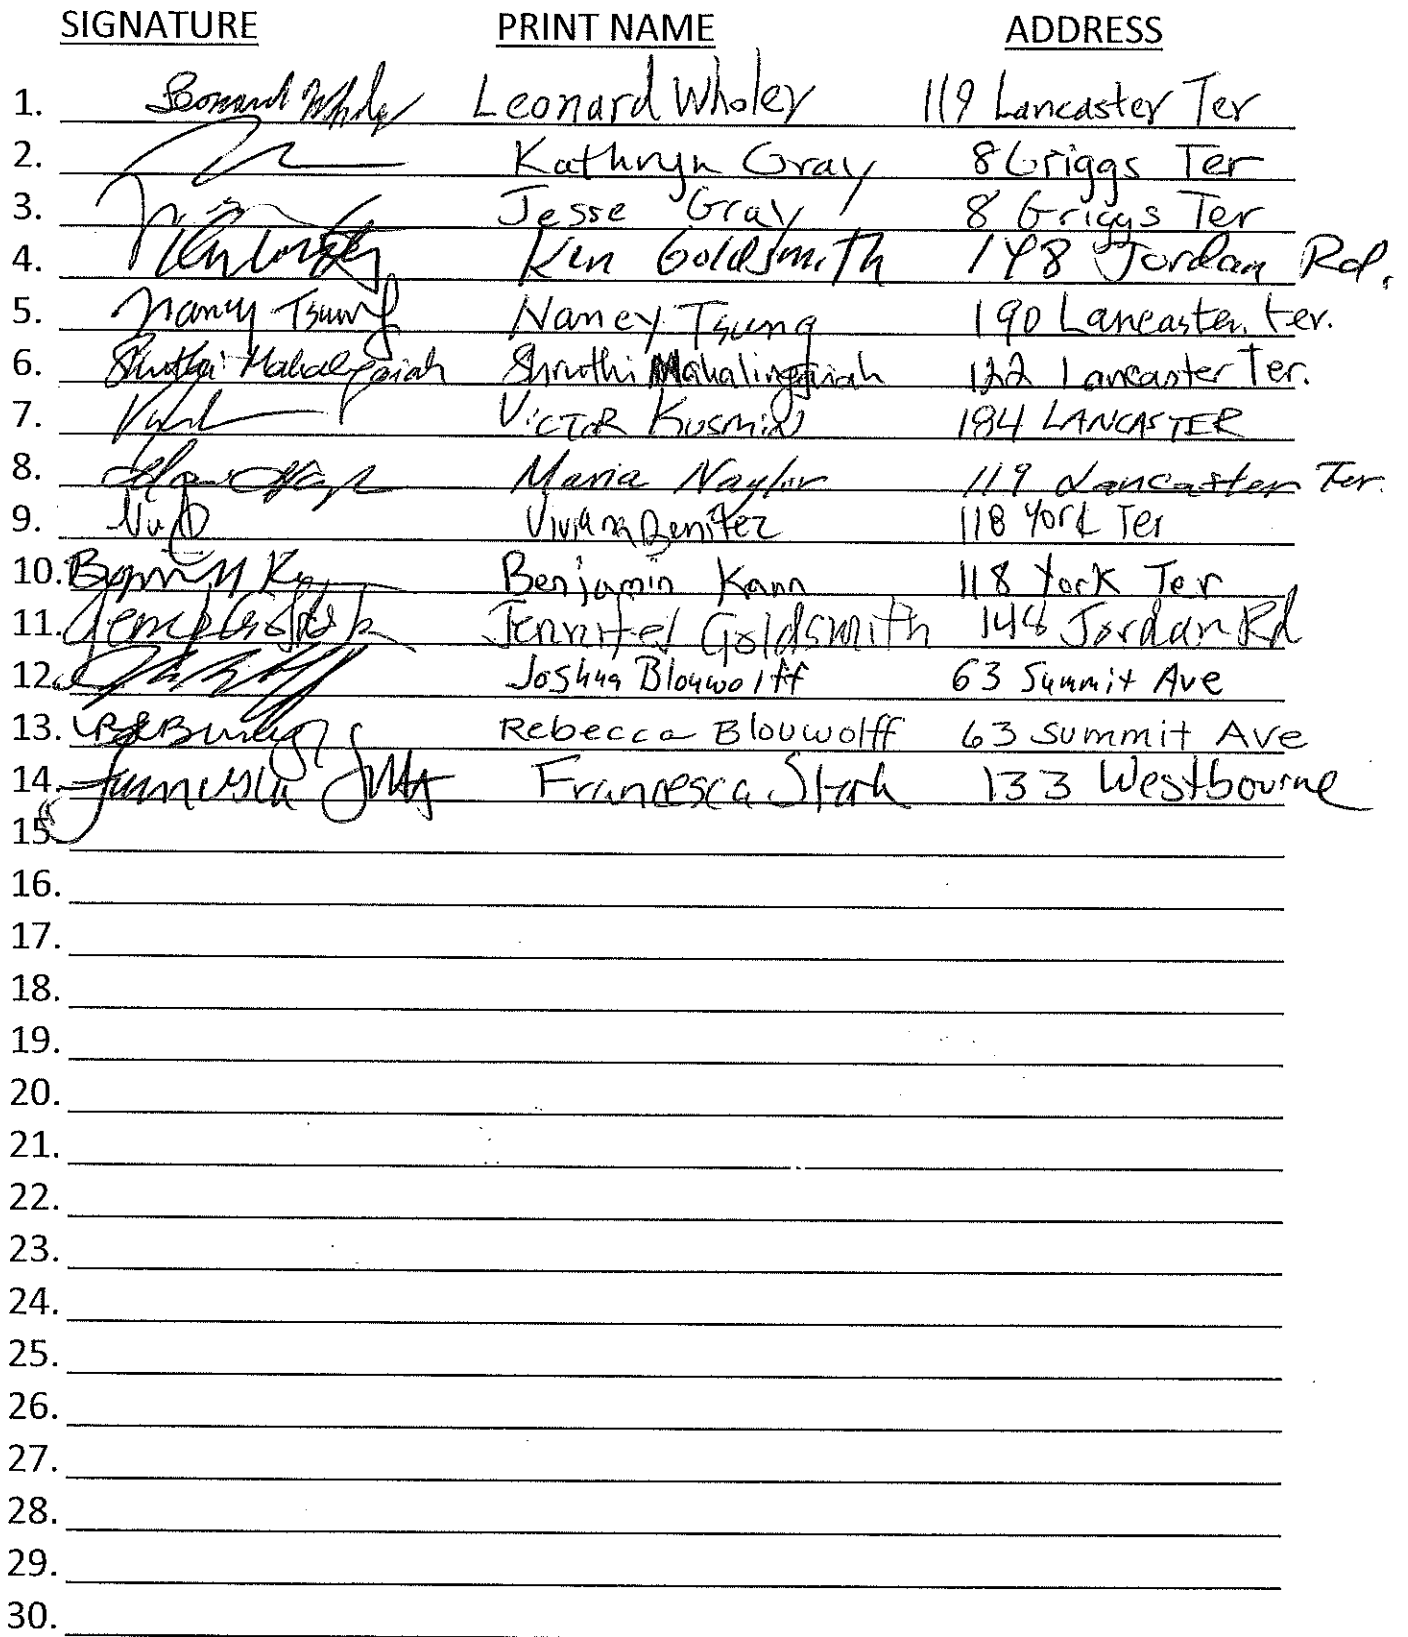 SIGNATURE PRINT NAME ADDRESS
1. Leonard Wholey Leonard Wholey 119 Lancaster Ter
2. Kathryn Gray 8 Griggs Ter
3. Jesse Gray 8 Griggs Ter
4. Ken Goldsmith 148 Jordan Rd.
5. Nancy Tsung Nancy Tsung 190 Lancaster ter.
6. Shruthi Mahalingaiah Shruthi Mahalingaiah 122 Lancaster Ter.
7. VICTOR KUSMIN 184 LANCASTER
8. Maria Naylor 119 Lancaster Ter.
9. Viviana Benitez 118 York Ter
10. Benjamin Kann 118 York Ter
11. Jennifer Goldsmith 148 Jordan Rd
12. Joshua Blouwolff 63 Summit Ave
13. Rebecca Blouwolff 63 Summit Ave
14. Francesca Stark 133 Westbourne
15.
16.
17.
18.
19.
20.
21.
22.
23.
24.
25.
26.
27.
28.
29.
30.